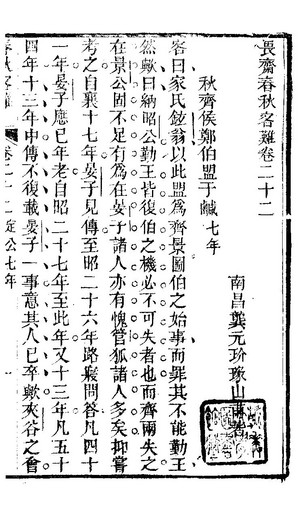 畏齋春秋客難卷二十二
南昌龔元玠瑑山甫著
秋齊侯鄭伯盟于鹹七年
客曰家氏鉉翁以此盟爲齊景圖伯之始事而罪其不能勤王
然歟曰納昭公勤王皆復伯之機必不可失者也而齊兩失之
在景公固不足責爲在晏子諸人亦有愧管狐諸人多矣抑嘗
考之自襄十七年晏子見傳至昭二十六年路寢問答凡四十
一年晏子應已年老自昭二十七年至此年又十三年凡五十
四年十三年中傳不復載晏子一事意其人已卒歟夾谷之會
春秋客難
卷二十二定公七年